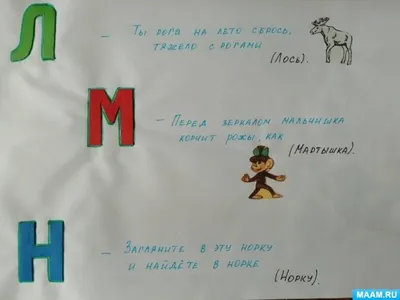 Л
– Ты рога на лето сбрось,
тяжело с рогами
(Лось).
М
– Перед зеркалом мальчишка
корчит рожы, как
(Мартышка).
Н
– Загляните в эту норку
и найдёте в норке
(Норку).
MAAM.RU